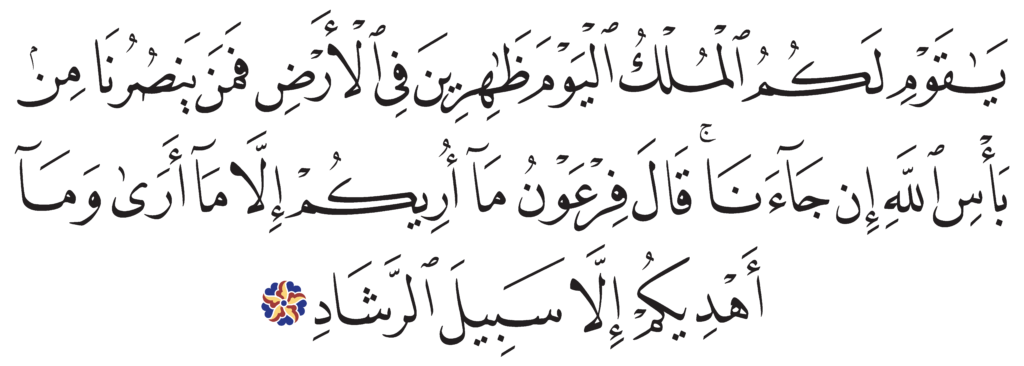 يَـٰقَوْمِ لَكُمُ ٱلْمُلْكُ ٱلْيَوْمَ ظَـٰهِرِينَ فِى ٱلْأَرْضِ فَمَن يَنصُرُنَا مِنۢ
بَأْسِ ٱللَّهِ إِن جَآءَنَا ۚ قَالَ فِرْعَوْنُ مَآ أُرِيكُمْ إِلَّا مَآ أَرَىٰ وَمَآ
أَهْدِيكُمْ إِلَّا سَبِيلَ ٱلرَّشَادِ